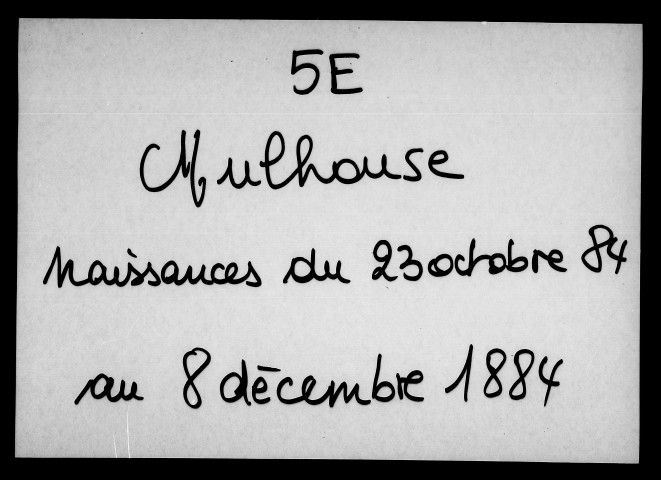 5E
Mulhouse
Naissances du 23 octobre 84
au 8 décembre 1884